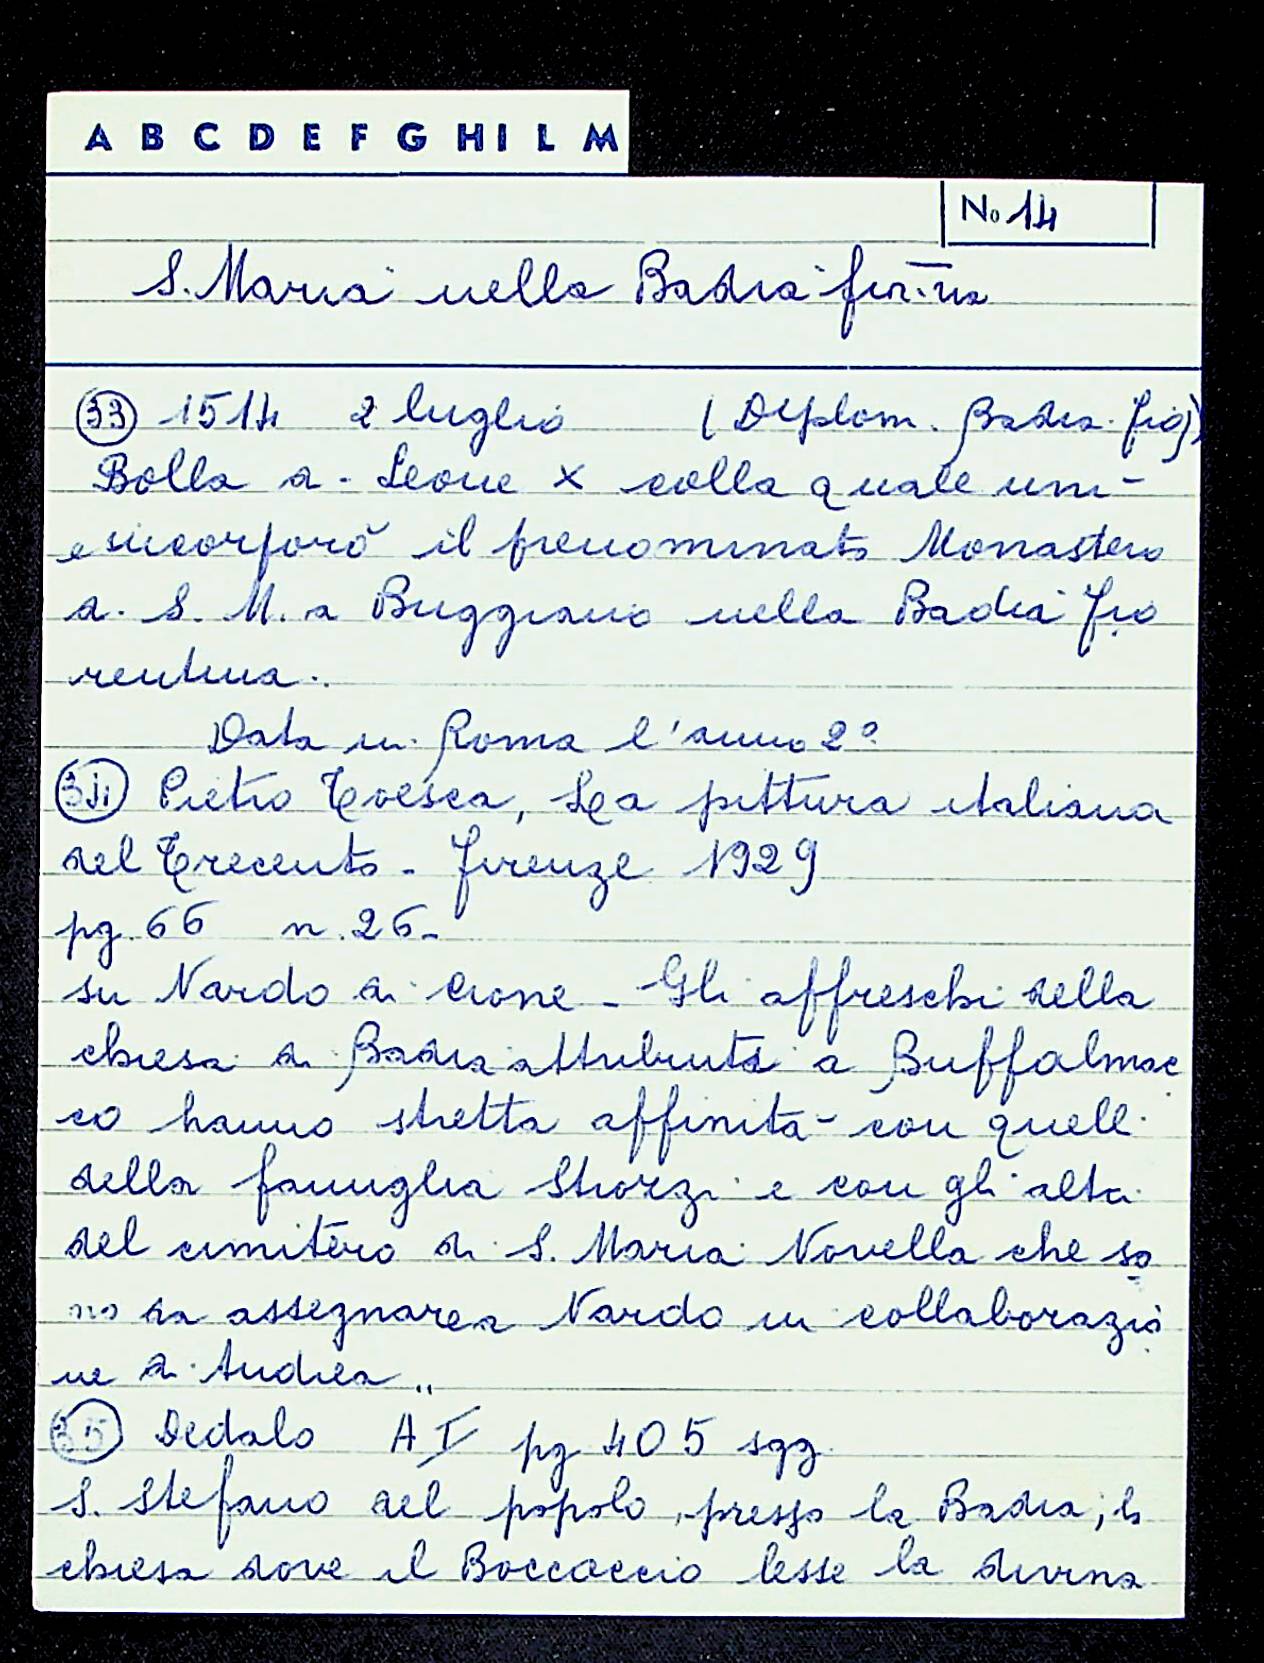 A B C D E F G H I L M
No 14
S. Maria nella Badia fior.na
33 1514 2 luglio (Diplom. Badia. fio)
Bolla di Leone X colla quale uni-
e incorporò il prenominato Monastero
di S. M. a Buggiano nella Badia Fio
rentina.
Data in Roma l'anno 2º
34 Pietro Toesca, La pittura italiana
del Trecento - Firenze 1929
pg. 66 n. 26-
su Nardo di Cione - Gli affreschi della
chiesa di Badia attribuiti a Buffalmac
co hanno stretta affinità con quelli
della famiglia Strozzi e con gli altri
del cimitero di S. Maria Novella che so
no da assegnare a Nardo in collaborazio
ne di Andrea"
35 Dedalo A I pg 405 sgg.
S. Stefano del popolo, presso la Badia, la
chiesa dove il Boccaccio lesse la divina